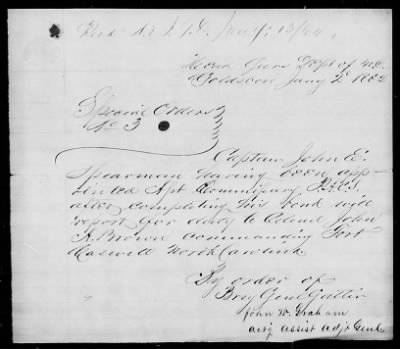 Head Qurs Dept of N.C.
Goldsboro Jany 2d 1862
Special Orders
No 3
Captain John E.
Spearman having been app-
ointed Asst Commissary P.A.C.S.
after completing his bond will
report for duty to Colonel John
N. Brown commanding Fort
Caswell North Carolina.
By order of
Brig Genl Gatlin
John W. Graham
actg assist adjt Genl